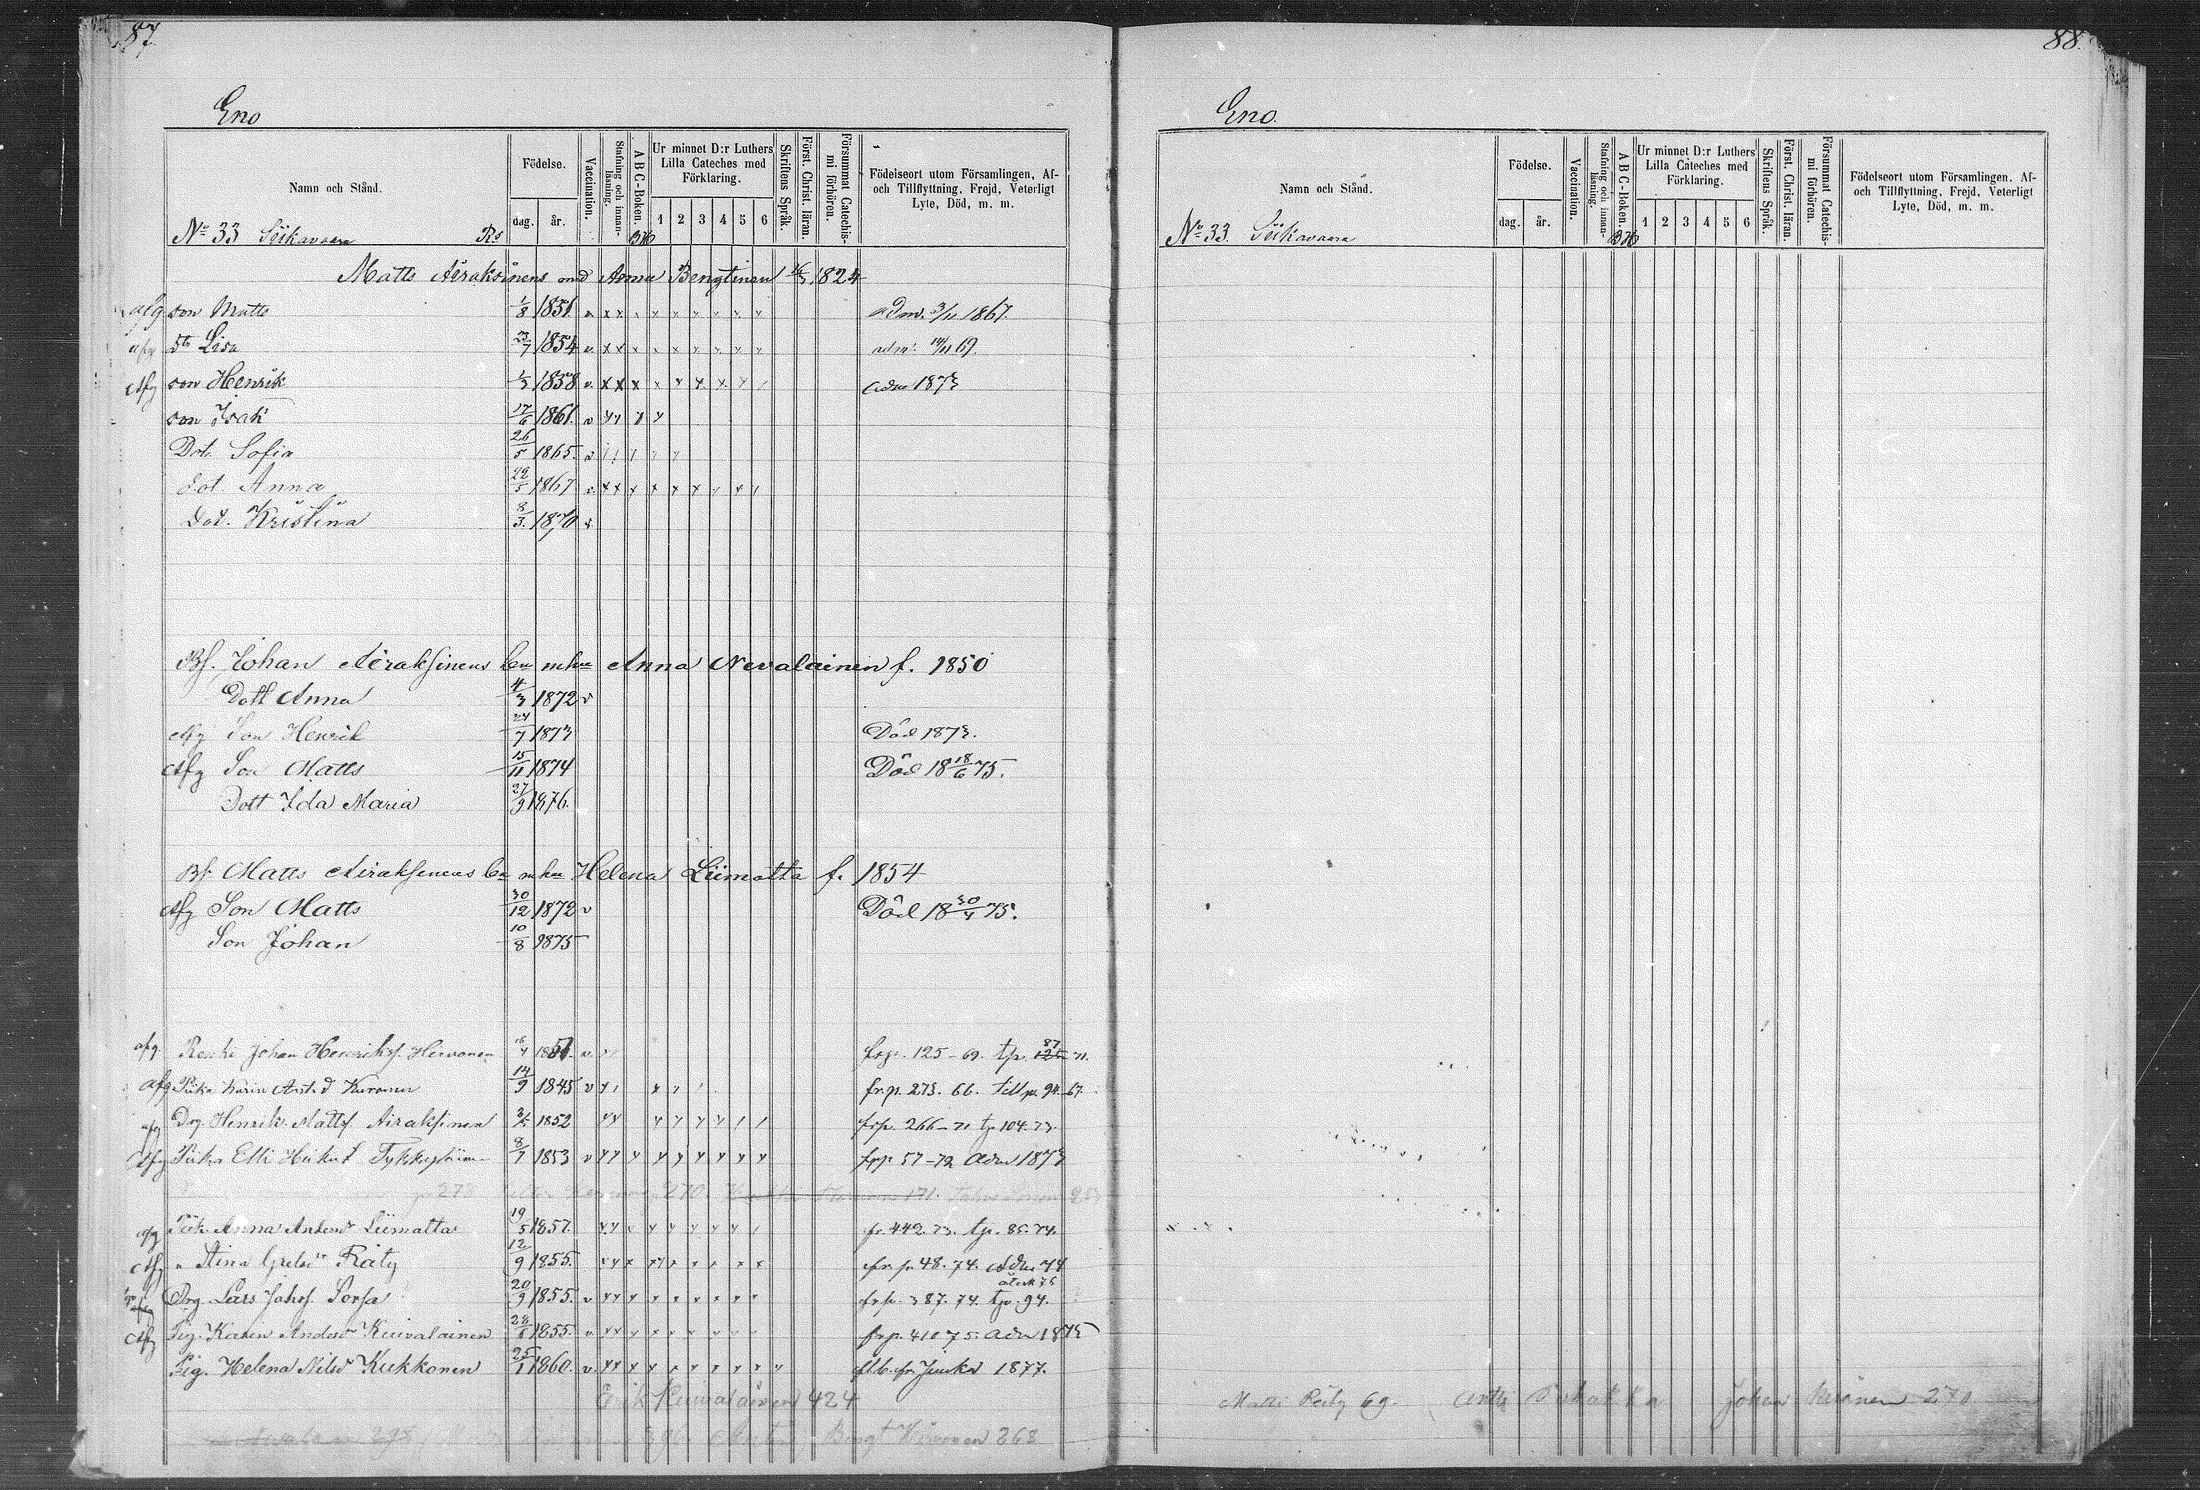 87
Eno
Namn och Stånd.
Födelse.
dag. år.
Vaccination.
Stafning och innan-läsning.
A B C-Boken.
Ur minnet D:r Luthers Lilla Cateches med Förklaring.
1 2 3 4 5 6
Skriftens Språk.
Först. Christ. läran.
Försummat Catechis-mi förhören.
Födelseort utom Församlingen, Af- och Tillflyttning, Frejd, Veterligt Lyte, Död, m. m.
No 33 Siikavaara Rs 376
Matts Airaksinens Anna Bengtinen 1824
afg son Matts 1/8 1851 v adm. 3/11 1867.
afg Dtr Lisa 23/7 1854 v adm. 69.
Afg son Henrik 1/3 1858 v adm 1873
son Isak 17/6 1861. v
Dot. Sofia 26/5 1865. v
dot Anna 22/5 1867 v
Dot. Kristina 8/3. 1870 v
Bf. Johan Airaksinens Anna Nevalainen f. 1850
Dott Anna 4/3 1872 v
Afg Son Henrik 24/7 1873 Död 1873.
Afg Son Matts 15/11 1874 Död 18 18/6 75.
Dott Ida Maria 27/9 1876.
Bf Matts Airaksinens Helena Liimatta f. 1854
Afg Son Matts 30/12 1872 v Död 18 30/4 75.
Son Johan 10/8 1875
afg. Renki Johan Henriks. Hirvonen 1851. v frp. 125-69. tp. 125 87 71.
afg Piika Karin Kuronen 14/9 1845 v frp. 273. 66. till p. 94. 67.
afg Drg. Henrik Matts Airaksinen 1852 frp. 266-71 tp 104. 73.
Afg Piika Elli 8/7 1853 v frp. 57-72 Adm 1873
p 278 270 171.
afg Piik. Anna Andersd Liimatta 19/5 1857. fr. 442. 73. tp. 85. 74.
Afg " Stina Räty 12/9 1855. fr p. 48. 74. Adm 74
Drg. Lars Johs. Sorsa 20/9 1855. v frp. 387. 74. tp. 94.
Afg Pig. Karin Andersd Kuivalainen 28/6 1855. v frp. 410 75. Adm 1875
Pig. Helena Nilsd Kukkonen 25/1 1860. v 1877.
Erik Kuivalainen 424
Bengt 268
88.
Eno.
Namn och Stånd.
Födelse.
dag. år.
Vaccination.
Stafning och innan-läsning.
A B C-Boken.
Ur minnet D:r Luthers Lilla Cateches med Förklaring.
1 2 3 4 5 6
Skriftens Språk.
Först. Christ. läran.
Försummat Catechis-mi förhören.
Födelseort utom Församlingen, Af- och Tillflyttning, Frejd, Veterligt Lyte, Död, m. m.
No 33. Siikavaara 376
Matti Räty 69. Antti Johan 270